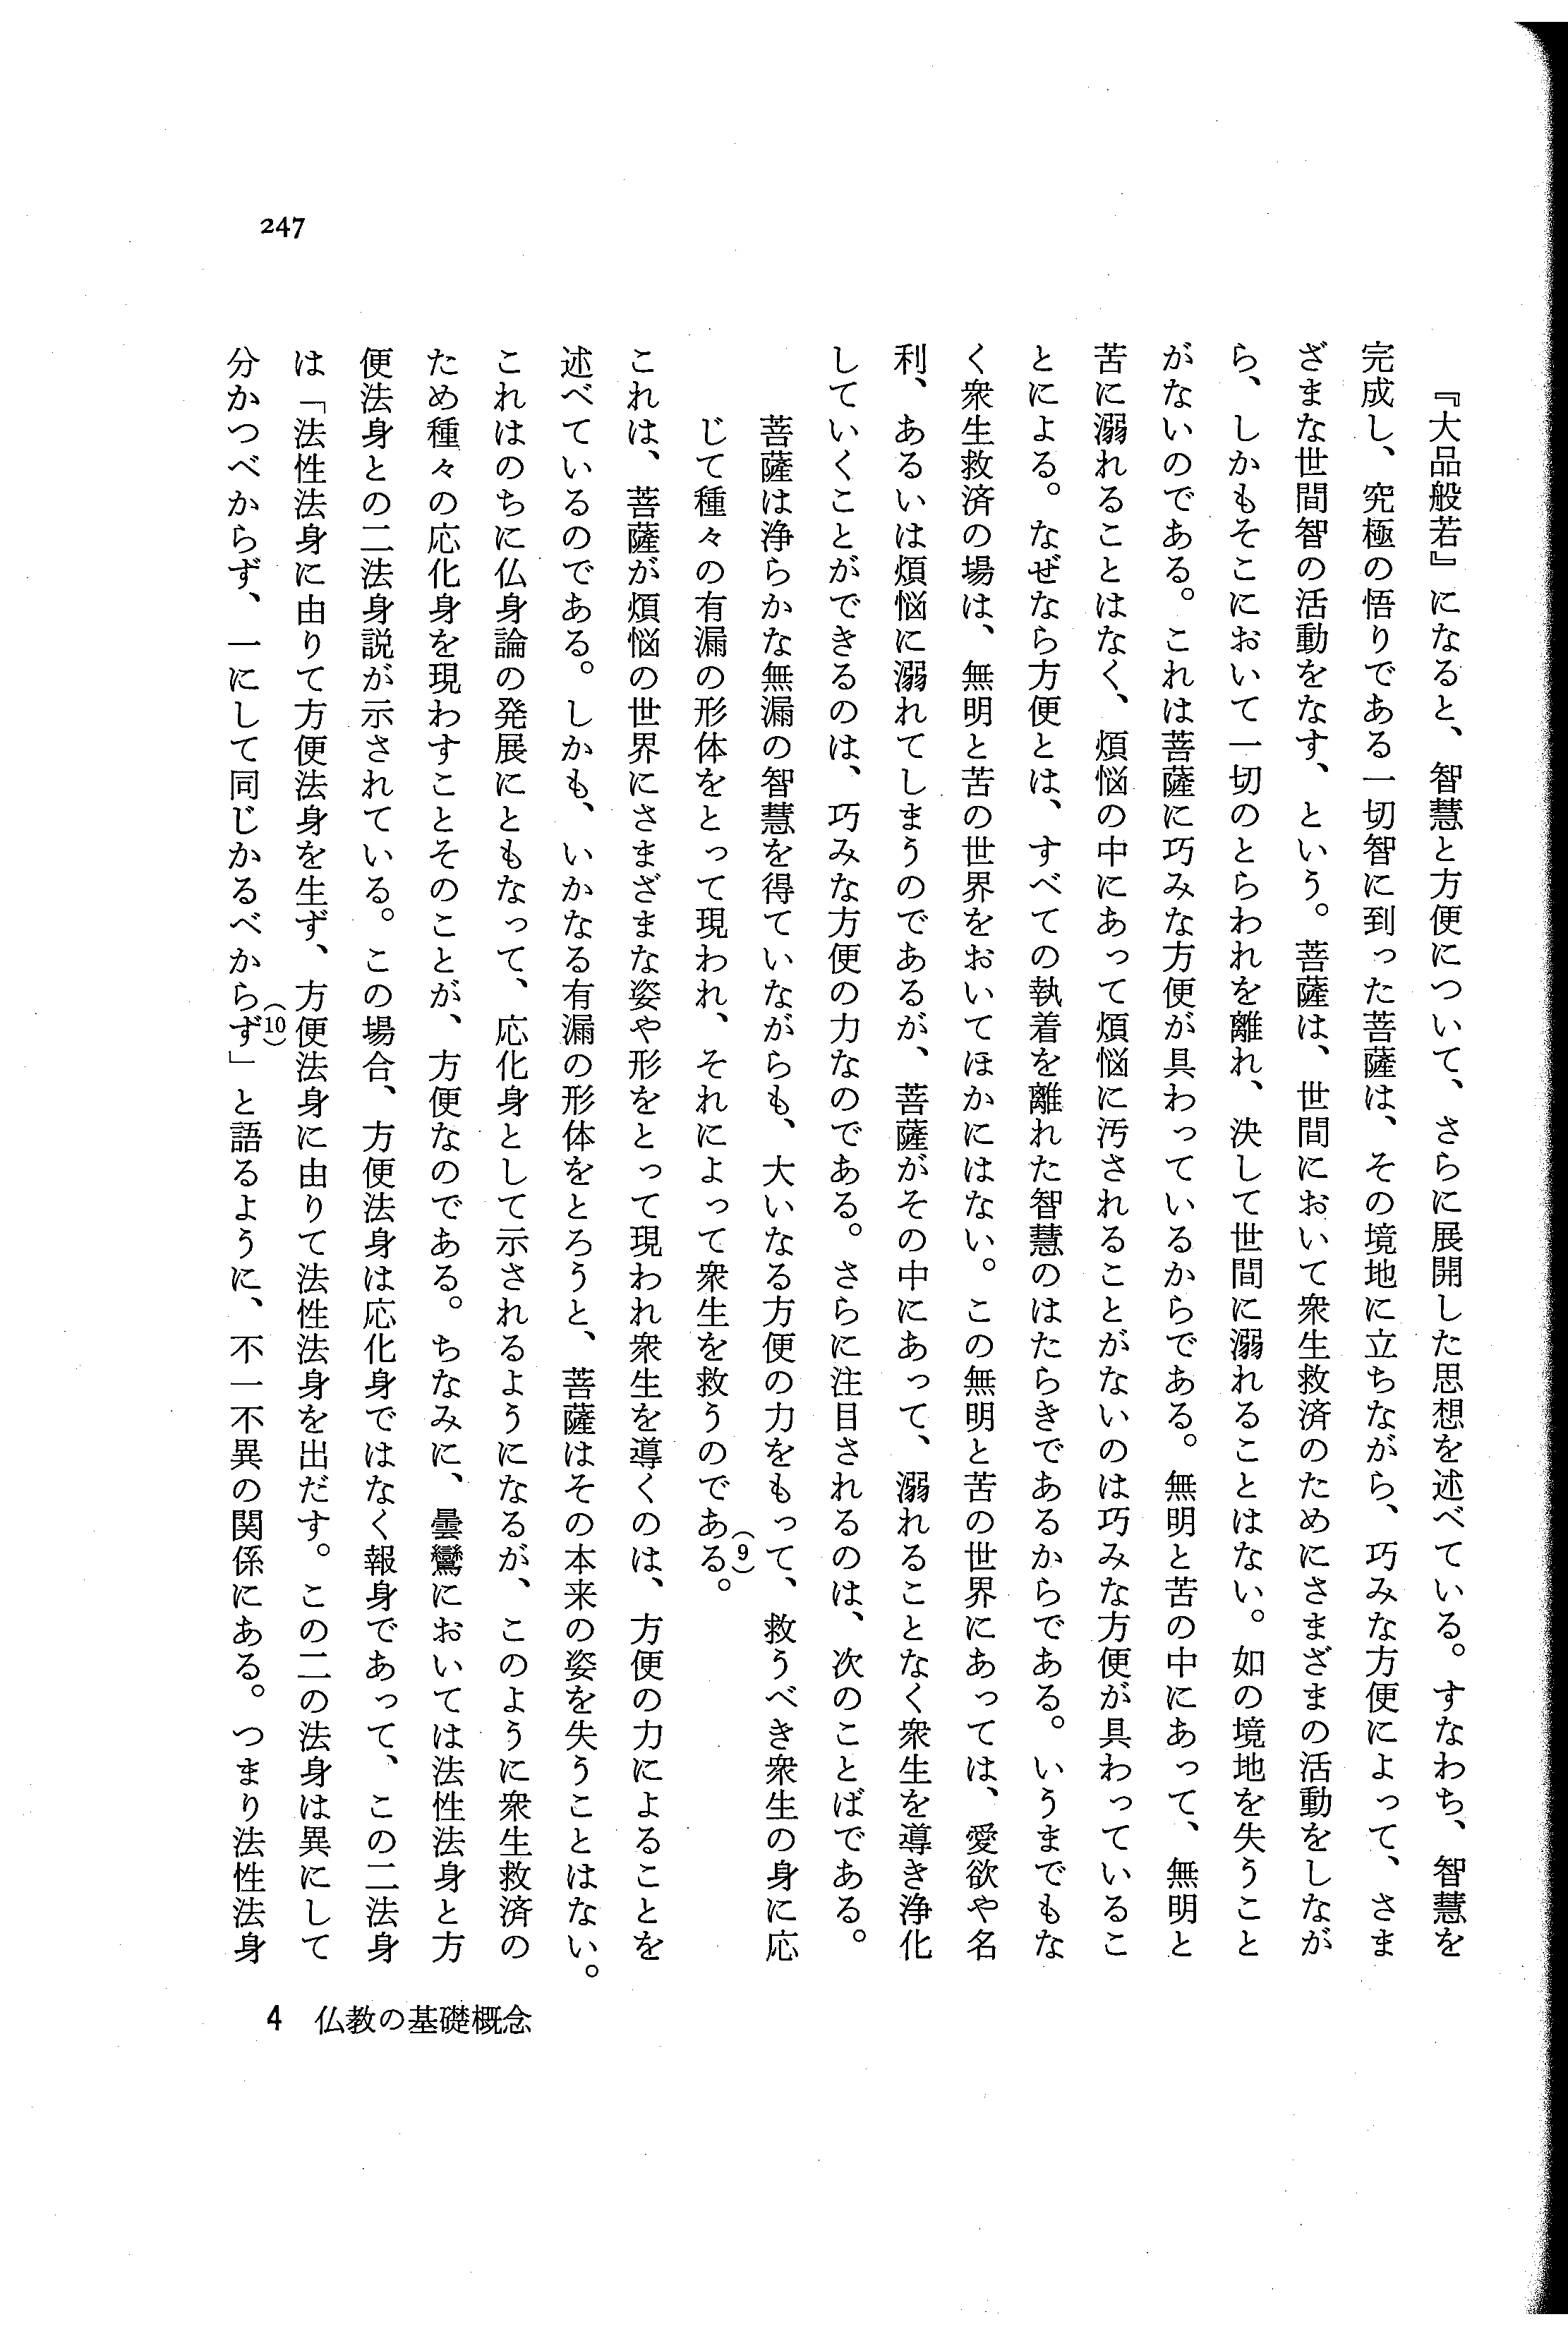 『大品般若』になると、智慧と方便について、さらに展開した思想を述べている。すなわち、智慧を
完成し、究極の悟りである一切智に到った菩薩は、その境地に立ちながら、巧みな方便によって、さま
ざまな世間智の活動をなす、という。菩薩は、世間において衆生救済のためにさまざまの活動をしなが
ら、しかもそこにおいて一切のとらわれを離れ、決して世間に溺れることはない。如の境地を失うこと
がないのである。これは菩薩に巧みな方便が具わっているからである。無明と苦の中にあって、無明と
苦に溺れることはなく、煩悩の中にあって煩悩に汚されることがないのは巧みな方便が具わっているこ
とによる。なぜなら方便とは、すべての執着を離れた智慧のはたらきであるからである。いうまでもな
く衆生救済の場は、無明と苦の世界をおいてほかにはない。この無明と苦の世界にあっては、愛欲や名
利、あるいは煩悩に溺れてしまうのであるが、菩薩がその中にあって、溺れることなく衆生を導き浄化
していくことができるのは、巧みな方便の力なのである。さらに注目されるのは、次のことばである。
菩薩は浄らかな無漏の智慧を得ていながらも、大いなる方便の力をもって、救うべき衆生の身に応
じて種々の有漏の形体をとって現われ、それによって衆生を救うのである。(9)
これは、菩薩が煩悩の世界にさまざまな姿や形をとって現われ衆生を導くのは、方便の力によることを
述べているのである。しかも、いかなる有漏の形体をとろうと、菩薩はその本来の姿を失うことはない。
これはのちに仏身論の発展にともなって、応化身として示されるようになるが、このように衆生救済の
ため種々の応化身を現わすことそのことが、方便なのである。ちなみに、曇鸞においては法性法身と方
便法身との二法身説が示されている。この場合、方便法身は応化身ではなく報身であって、この二法身
は「法性法身に由りて方便法身を生ず、方便法身に由りて法性法身を出だす。この二の法身は異にして
分かつべからず、一にして同じかるべからず」(10)と語るように、不一不異の関係にある。つまり法性法身
4 仏教の基礎概念
247